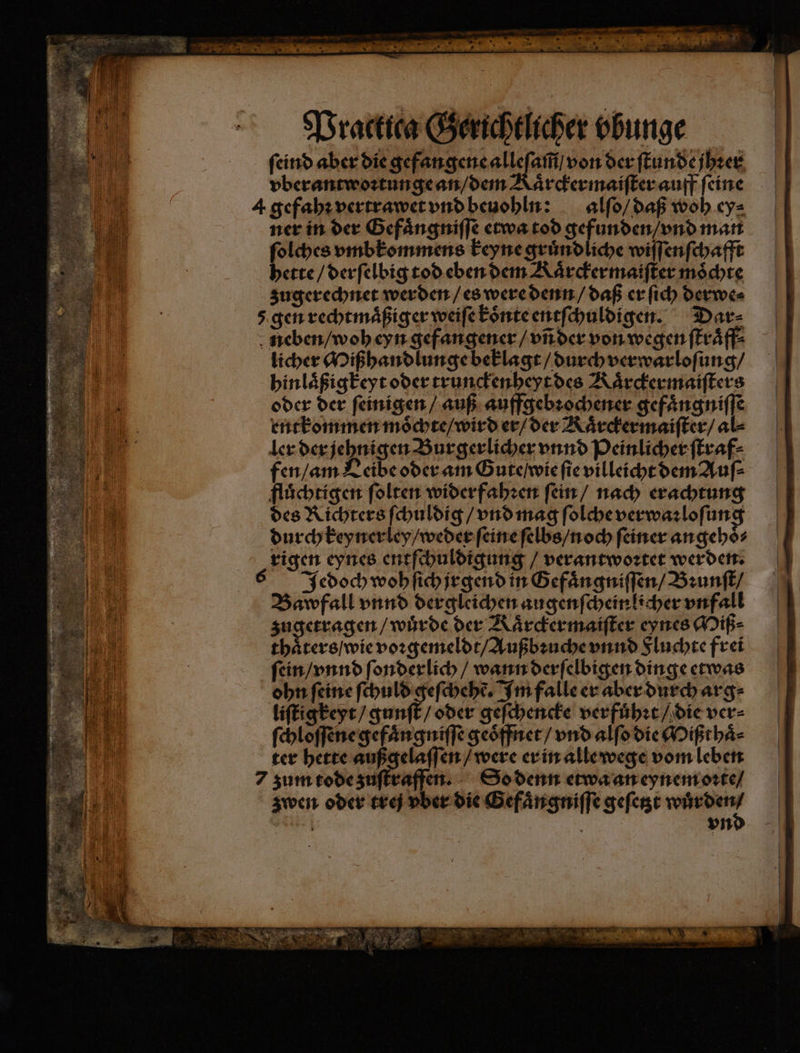 Practica Gerichtlicher vbunge
ſeind aber die gefangene alleſam̃/ von der ſtunde jhꝛer
vberantwoꝛtunge an/dem Kaͤrckermaiſter auff ſeine
4 gefahꝛ vertrawet vnd beuohln: alſo/ daß woh ey⸗
ner in der Gefaͤngniſſe etwa tod gefunden/vnd man
ſolches vmbkommens keyne gruͤndliche wiſſenſchafft
hette / derſelbig tod eben dem Kaͤrckermaiſter moͤchte
zugerechnet werden / es were denn / daß er ſich derwe⸗
5 gen rechtmaͤßiger weiſe koͤnte entſchuldigen. Dar⸗
neben/woh eyn gefangener / vñ der von wegen ſtraͤff⸗
licher Mißhandlunge beklagt / durch verwarloſung/
hinlaͤßigkeyt oder trunckenheyt des Kaͤrckermaiſters
oder der ſeinigen / auß auffgebꝛochener gefaͤngniſſe
entkommen moͤchte/wird er/ der Kaͤrckermaiſter/ al⸗
ler der jehnigen Burgerlicher vnnd Peinlicher ſtraf⸗
fen/am Leibe oder am Gute/wie ſie villeicht dem Auſ⸗
fluͤchtigen ſolten widerfahꝛen ſein / nach erachtung
des Richters ſchuldig / vnd mag ſolche verwaꝛloſung
durch keynerley/weder ſeine ſelbs/noch ſeiner angehoͤ⸗
rigen eynes entſchuldigung / verantwoꝛtet werden.
6 Jedoch woh ſich jrgend in Gefaͤngniſſen/ Bꝛunſt/
Bawfall vnnd dergleichen augenſcheinlicher vnfall
zugetragen / wuͤrde der Kaͤrckermaiſter eynes Miß⸗
thaͤters/wie voꝛgemeldt/Außbꝛuche vnnd Fluchte frei
ſein/vnnd ſonderlich / wann derſelbigen dinge etwas
ohn ſeine ſchuld geſchehe. Im falle er aber durch arg⸗
liſtigkeyt / gunſt / oder geſchencke verfuͤhꝛt / die ver⸗
ſchloſſene gefaͤngniſſe geoͤffnet / vnd alſo die Mißthaͤ⸗
ter hette außgelaſſen / were er in allewege vom leben
7 zum tode zuſtraffen. So denn etwa an eynem oꝛte/
zwen oder trej vber die Gefaͤngniſſe geſetzt wuͤrden/
vnd